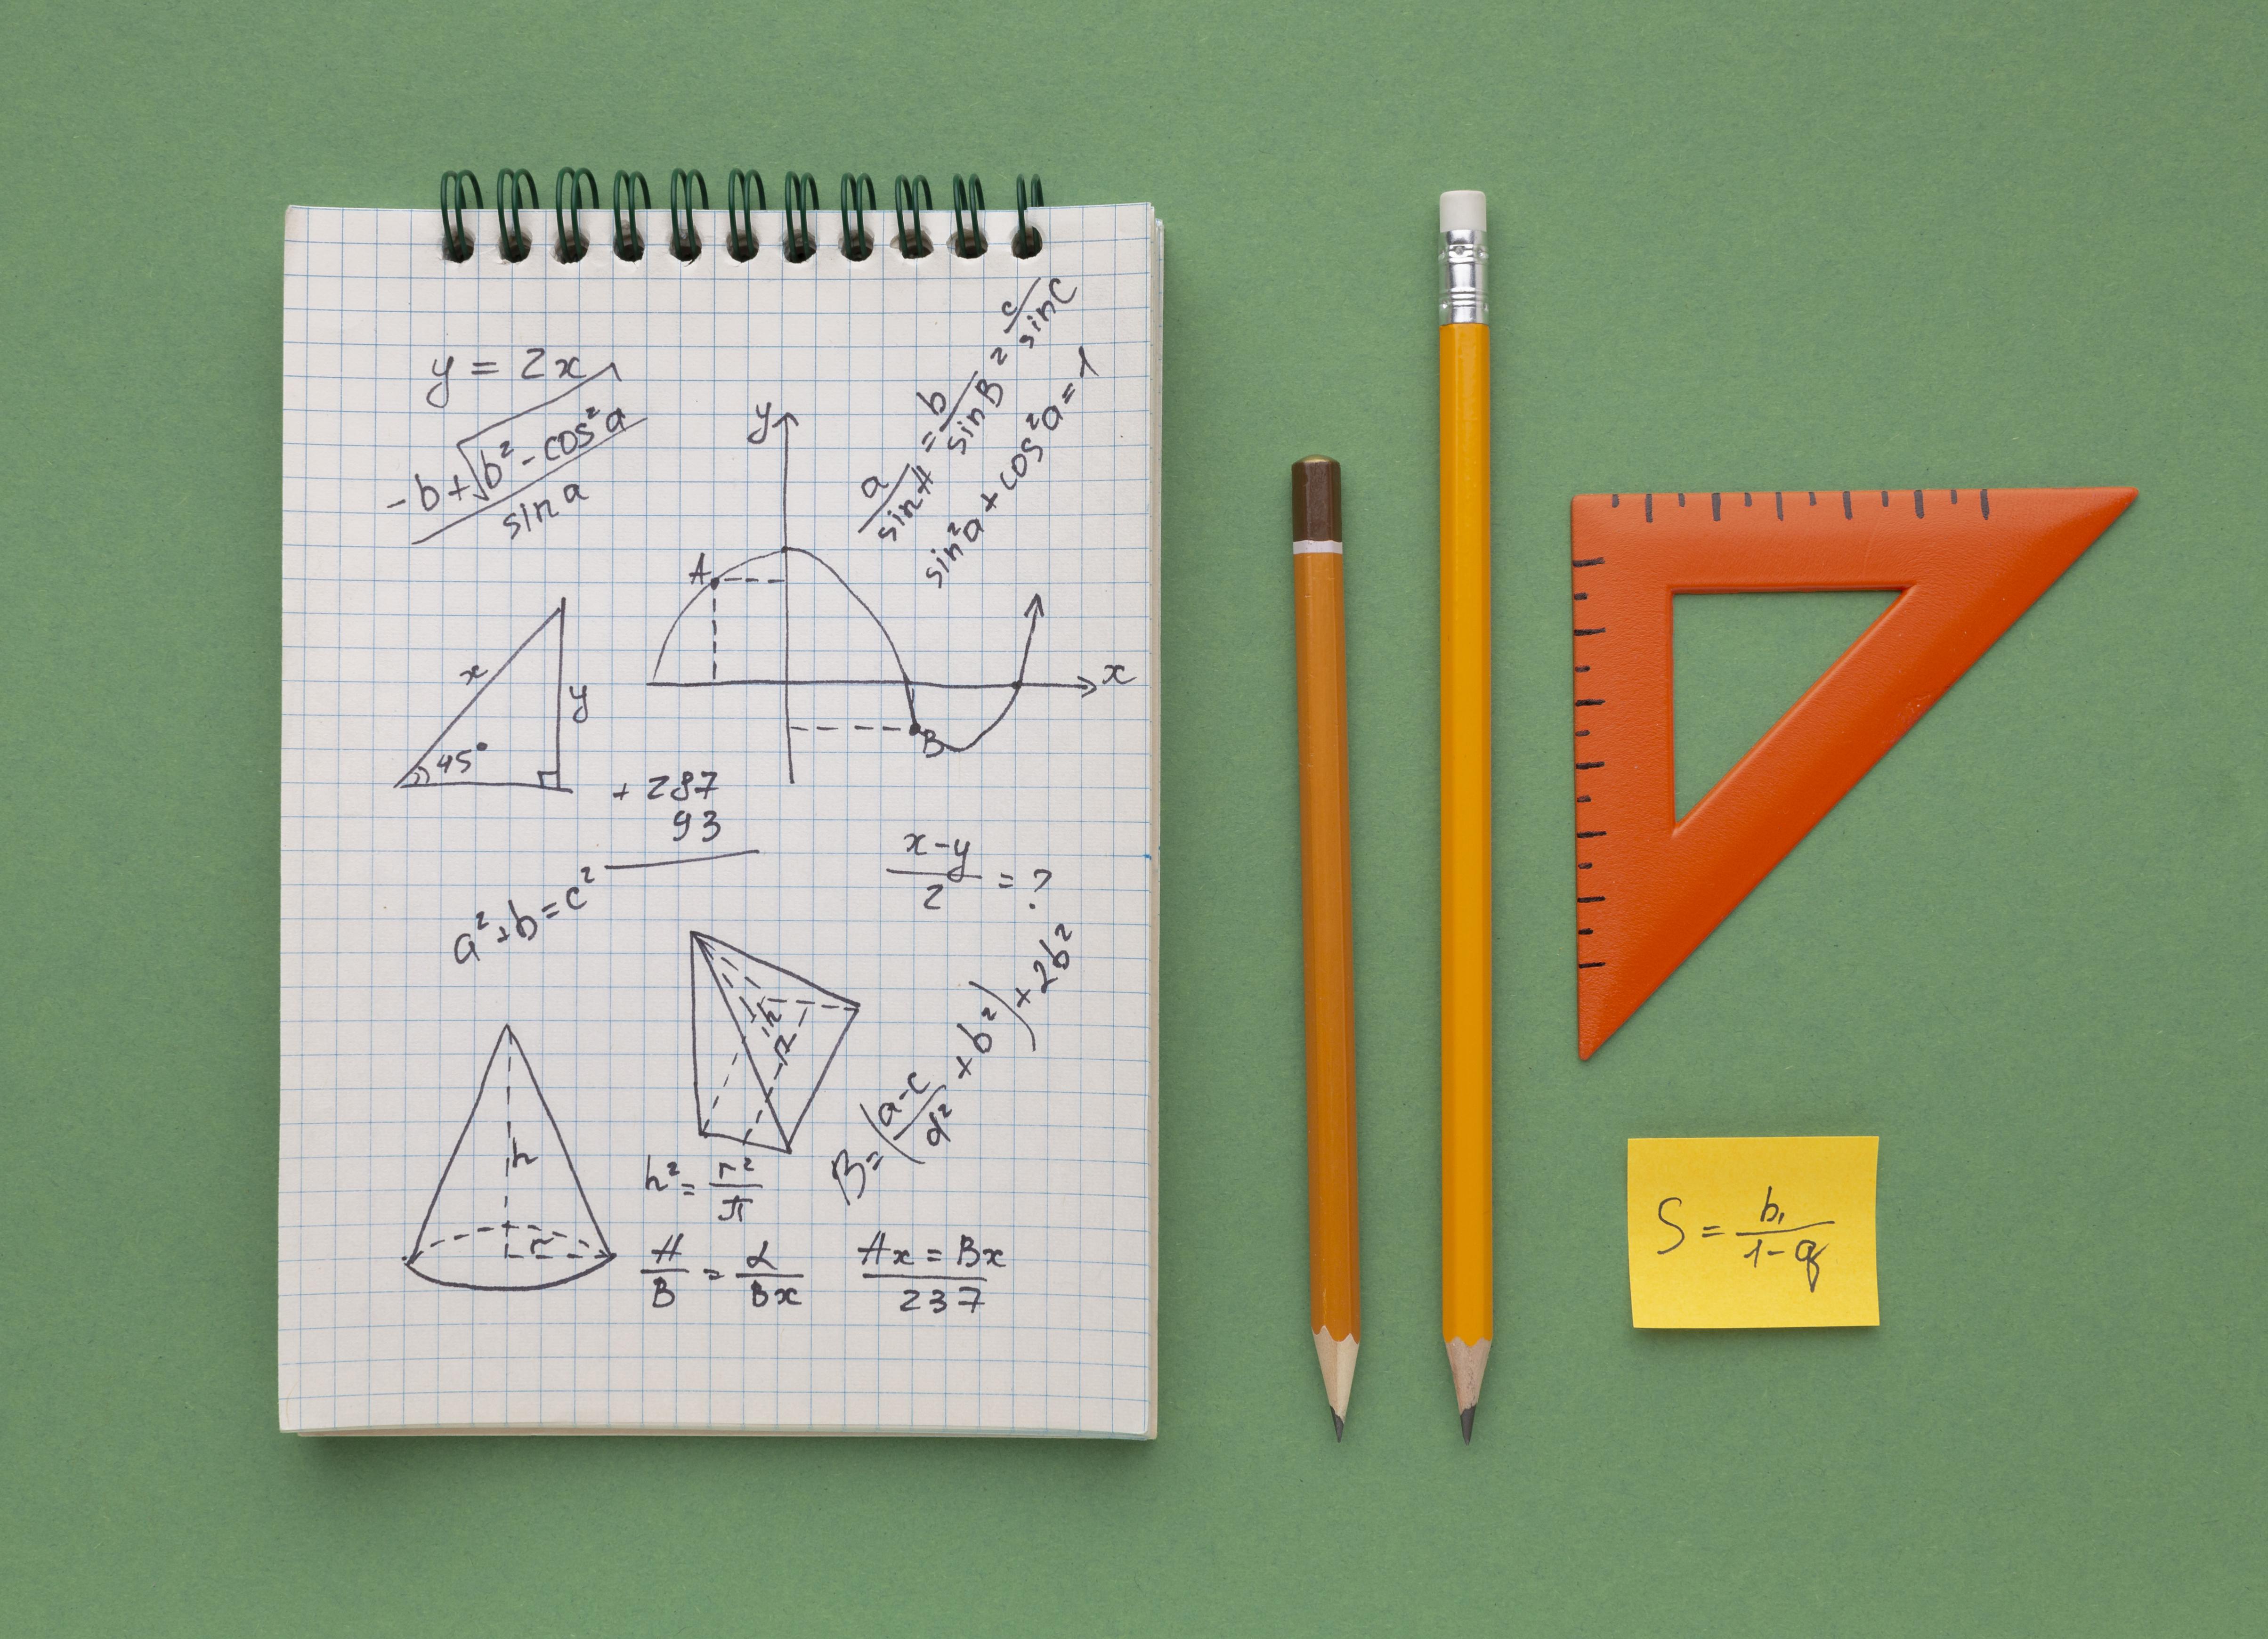 y = 2x
(-b + √(b² - cos²a)) / sin a
a/sin A = b/sin B = c/sin C
sin²a + cos²a = 1
y
A
x
B
x
y
45°
+ 287
93
(x - y)/2 = ?
a² + b = c²
h
B = ((a-c)/d² + b²) + 2b²
h
r
h² = r²/π
A/B = α/Bx
Ax = Bx
237
S = b₁/(1 - q)